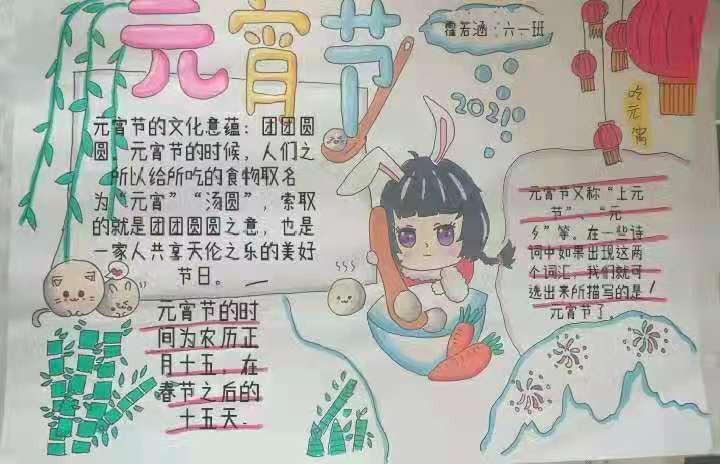 元宵节
霍若涵：六一班
2021
吃元宵
元宵节的文化意蕴：团团圆
圆。元宵节的时候，人们之
所以给所吃的食物取名
为“元宵”“汤圆”，索取
的就是团团圆圆之意，也是
一家人共享天伦之乐的美好
节日。
元宵节的时
间为农历正
月十五，在
春节之后的
十五天.
元宵节又称“上元
节”、“元
夕”等。在一些诗
词中如果出现这两
个词汇，我们就可
选出来所描写的是
元宵节了。